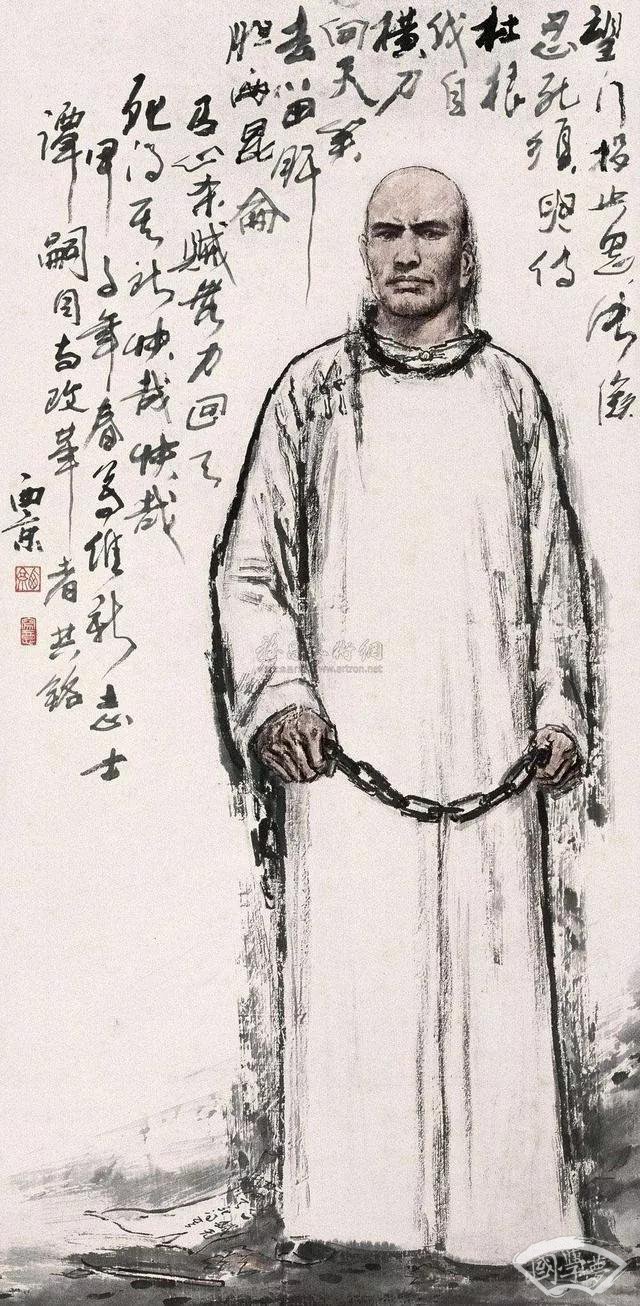 望门投止思张俭
忍死须臾待
杜根
我自
横刀
向天笑
去留肝
胆两昆侖
有心杀贼无力回天
死得其所快哉快哉
甲子年春为维新志士
譚嗣同与改革者共铭
西京
www.artron.net
國學